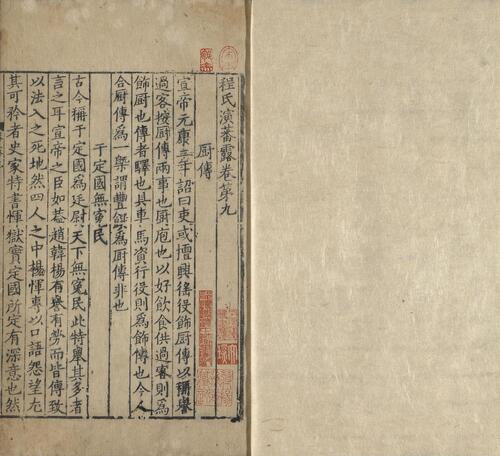 程氏演蕃露卷第九
厨傳
宣帝元康二年詔曰吏或擅興徭役飾厨傳以稱譽
過客按厨傳兩事也厨庖也以好飲食供過客則爲
飾厨也傳者驛也具車馬資行役則爲飾傳也今人
合厨傳爲一槩謂豐饌爲厨傳非也
于定國無寃民
古今稱于定國爲廷尉天下無寃民此特舉其多者
言之耳宣帝之臣如蓋趙韓楊有譽有勞而皆傳致
以法入之死地然四人之中楊惲專以口語怨望尢
其可矜者史家特書惲獄實定國所定有深意也然